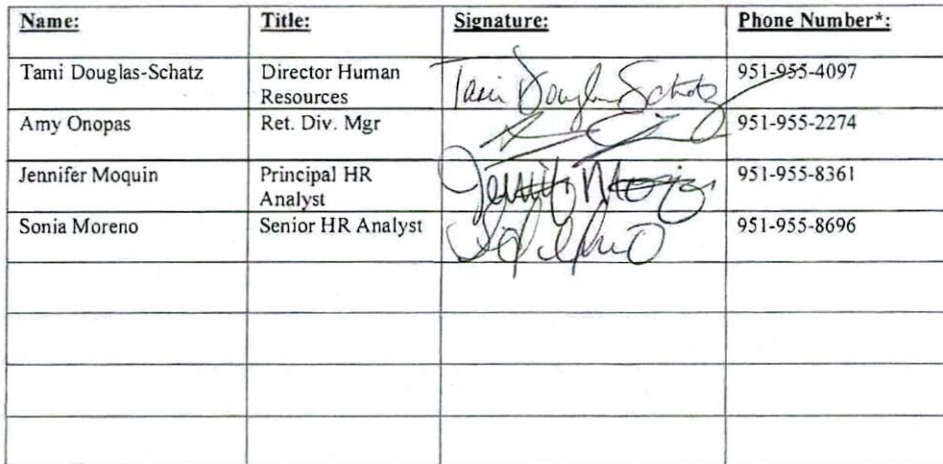 Name: Title: Signature: Phone Number*:
Tami Douglas-Schatz Director Human Resources Tami Douglas Schatz 951-955-4097
Amy Onopas Ret. Div. Mgr 951-955-2274
Jennifer Moquin Principal HR Analyst Jennifer Moquin 951-955-8361
Sonia Moreno Senior HR Analyst 951-955-8696